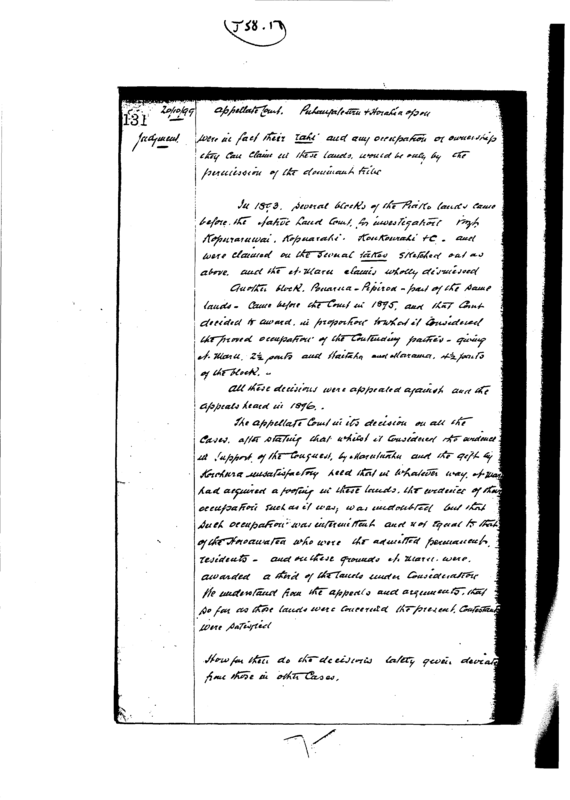 J 58. 17
20/10/99 Appellate Court.
131
Judgment
were in fact their rahi and any occupation or ownership
they can claim in these lands, would be only by the
permission of the dominant tribe
In several blocks of the Piako lands came
before the Native Land Court, for investigation
Kopuraruwai, Kopuarahi. Koukourahi &c. and
were claimed on the several takes sketched out as
above, and the N. Maru claims wholly dismissed
Another block, part of the same
lands - came before the Court in 1895, and that Court
decided to award, in proportion to what it considered
the proved occupation of the contending parties - giving
N. Maru, 2½ parts and
of the block. -
All these decisions were appealed against and the
appeals heard in 1896.
The Appellate Court in its decision on all the
cases, after stating that whilst it considered the evidence
in support, of the Conquest, by and the gift by
unsatisfactory held that in whatever way, N. Maru
had acquired a footing in these lands, the evidence of their
occupation such as it was, was undoubted but that
such occupation was intermittent and not equal to that
of the who were the admitted permanent
residents - and on these grounds N. Maru were
awarded a third of the lands under consideration
We understand from the appeals and arguments, that
so far as those lands were concerned the present Contestants
were satisfied
How far then do the decisions lately given deviate
from those in other Cases.